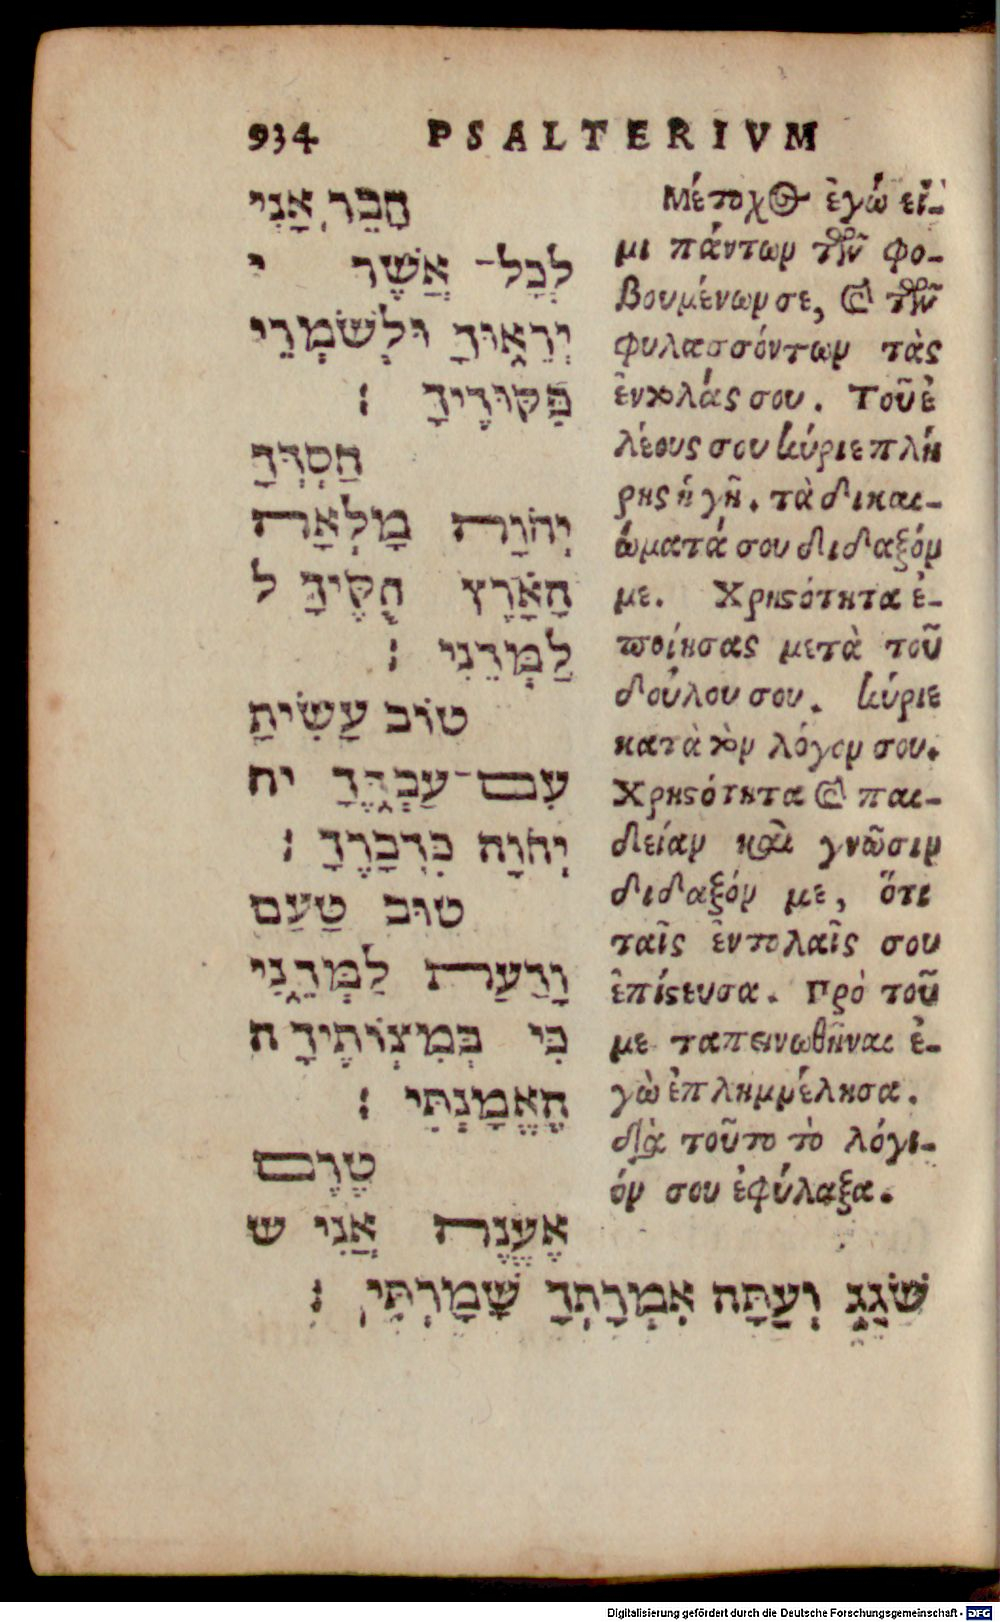 934 PSALTERIVM
חָבֵר אָנִי
לְכָל־ אֲשֶׁר י
יְרֵאוּךָ וּלְשֹׁמְרֵי
פִּקּוּדֶיךָ :
חַסְדְּךָ
יְהֹוָה מָלְאָה
הָאָרֶץ חֻקֶּיךָ ל
לַמְּדֵנִי :
טוֹב עָשִׂיתָ
עִם־עַבְדְּךָ יה
יְהֹוָה כִּדְבָרֶךָ :
טוּב טַעַם
וָדַעַת לַמְּדֵנִי
כִּי בְמִצְוֹתֶיךָ ה
הֶאֱמָנְתִּי :
טֶרֶם
אֶעֱנֶה אֲנִי ש
שֹׁגֵג וְעַתָּה אִמְרָתְךָ שָׁמָרְתִּי :
Μέτοχος ἐγώ εἰ-
μι πάντων τῶν φο-
βουμένων σε, καὶ τῶν
φυλασσόντων τὰς
ἐντολάς σου. Τοῦ ἐ
λέους σου κύριε πλή
ρης ἡ γῆ. τὰ δικαι-
ώματά σου δίδαξόν
με. Χρηστότητα ἐ-
ποίησας μετὰ τοῦ
δούλου σου. κύριε
κατὰ τὸν λόγον σου.
Χρηστότητα καὶ παι-
δείαν καὶ γνῶσιν
δίδαξόν με, ὅτι
ταῖς ἐντολαῖς σου
ἐπίστευσα. Πρὸ τοῦ
με ταπεινωθῆναι ἐ-
γὼ ἐπλημμέλησα.
διὰ τοῦτο τὸ λόγι-
όν σου ἐφύλαξα.
Digitalisierung gefördert durch die Deutsche Forschungsgemeinschaft - DFG